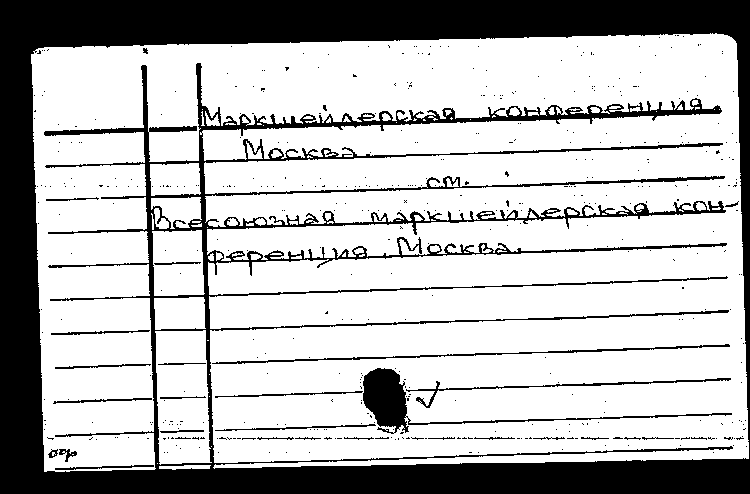 Маркшейдерская конференция.
Москва.
см.
Всесоюзная маркшейдерская кон-
ференция. Москва.